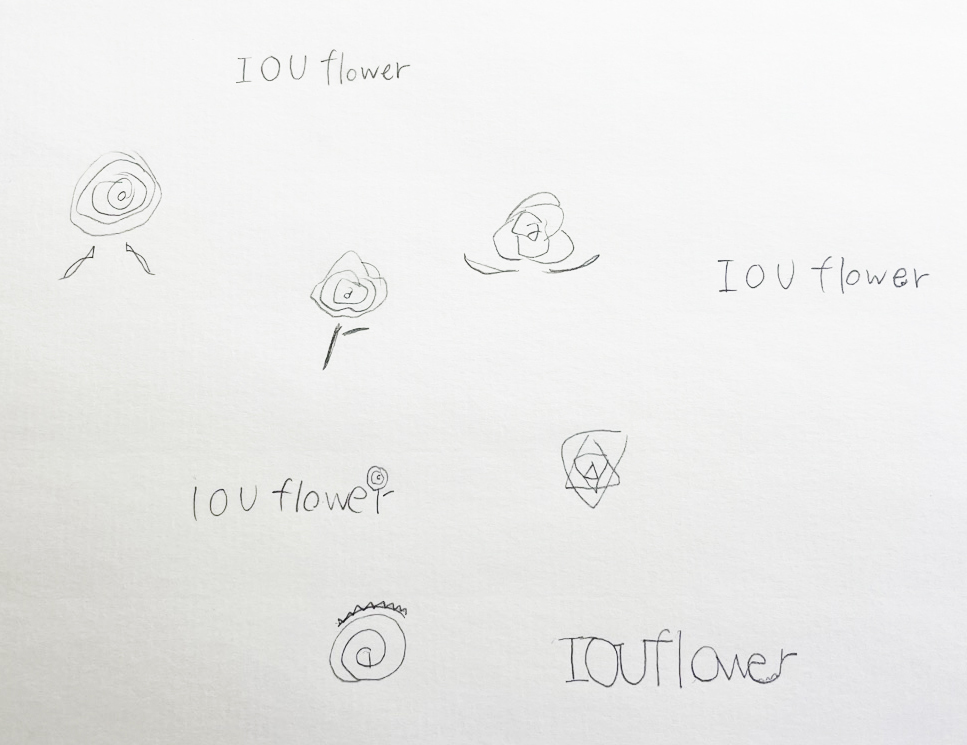 IOU flower
IOU flower
IOU flower
IOUflower